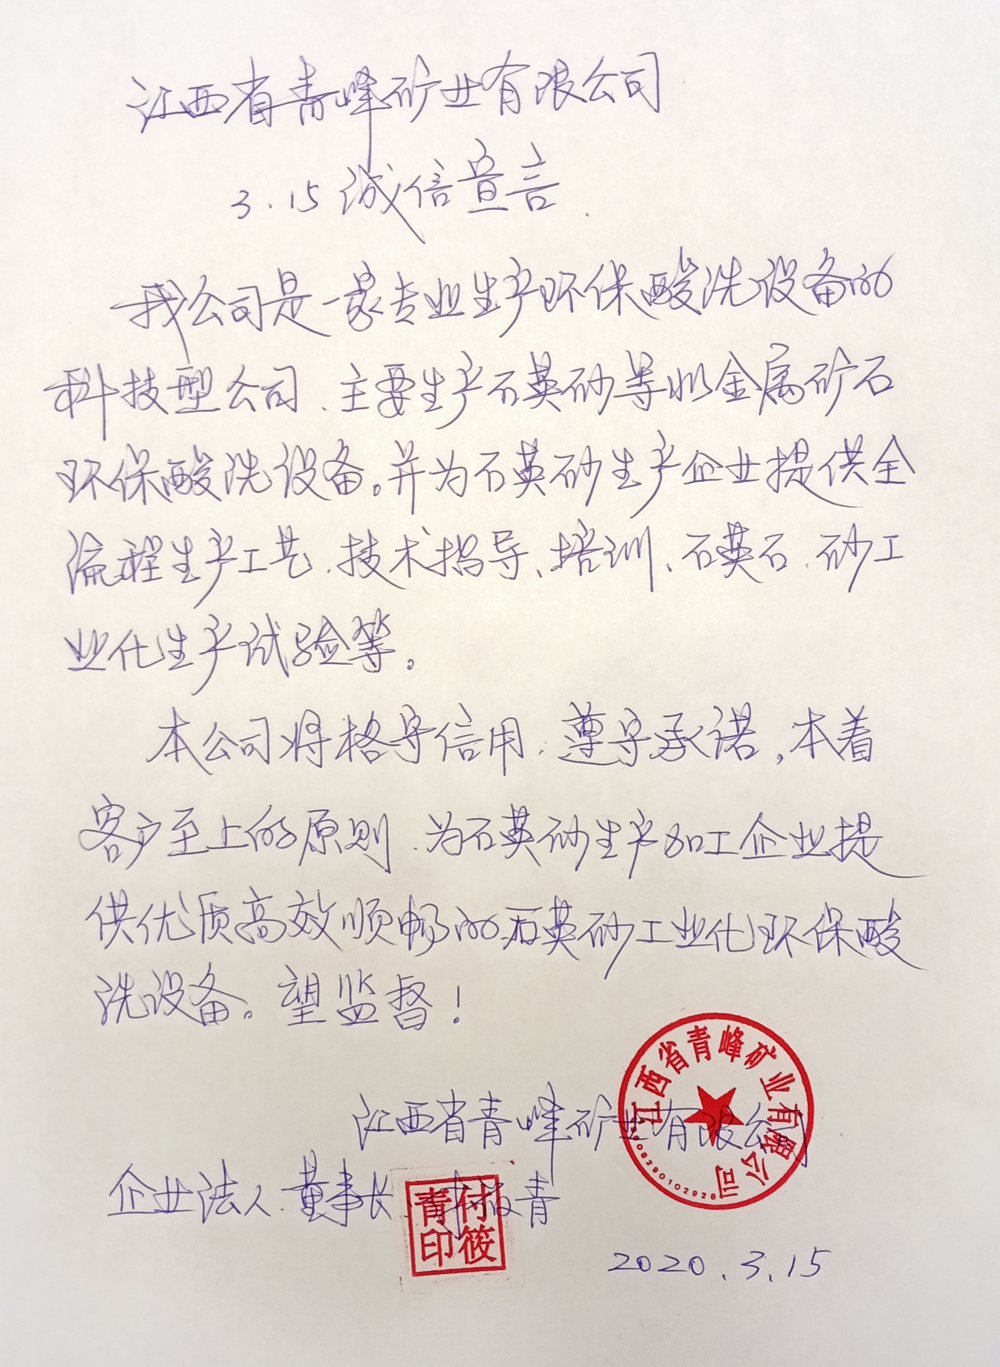 江西省青峰矿业有限公司
3.15诚信宣言
我公司是一家专业生产环保酸洗设备的
科技型公司、主要生产石英砂等非金属矿石
环保酸洗设备。并为石英砂生产企业提供全
流程生产工艺、技术指导、培训、石英石、砂工
业化生产试验等。
本公司将格守信用、尊守承诺，本着
客户至上的原则、为石英砂生产加工企业提
供优质高效顺畅的石英砂工业化环保酸
洗设备。望监督！
江西省青峰矿业有限公司
江西省青峰矿业有限公司
企业法人、董事长 青
付筱青印
2020.3.15